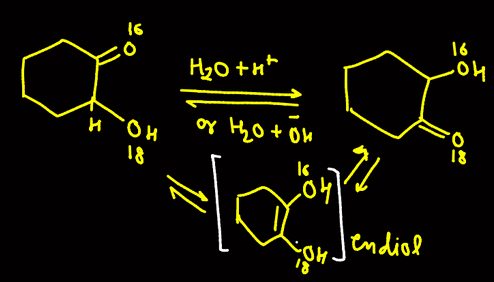 16
O
H
OH
18
H₂O + H⁺
or H₂O + ŌH
16
OH
O
18
16
OH
18 OH
endiol